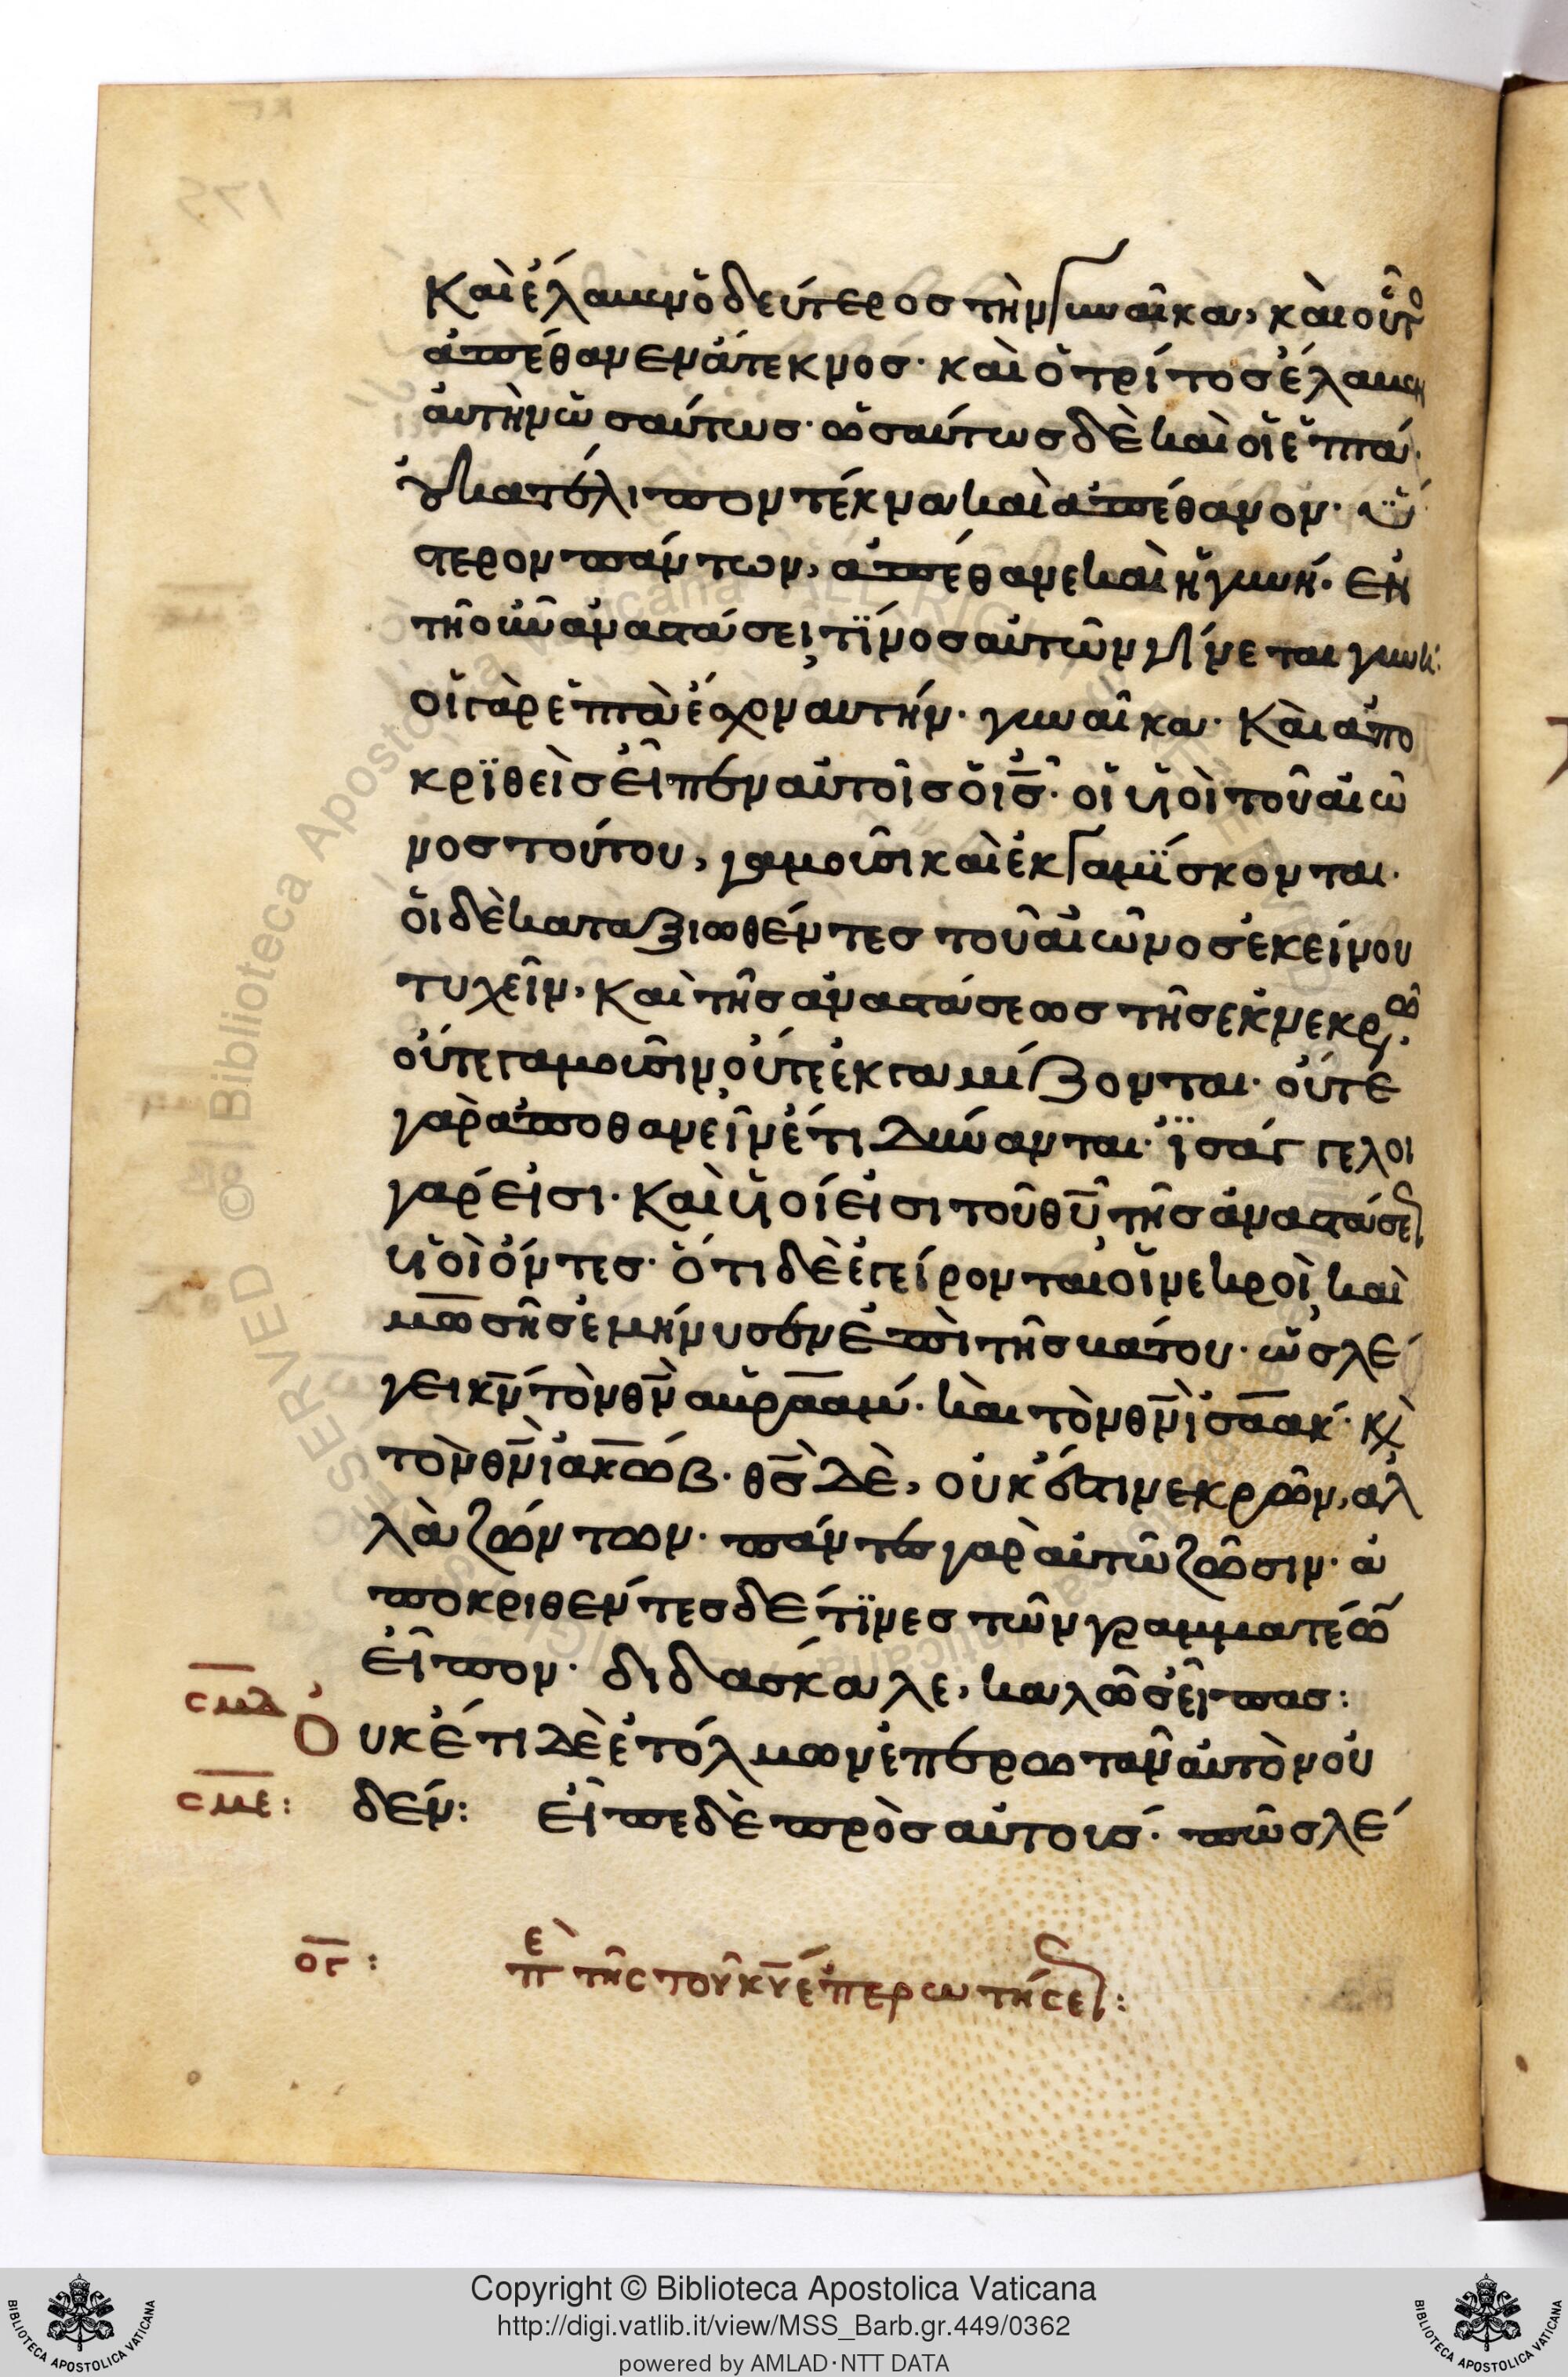 καὶ ἔλαβεν ὁ δεύτερος τὴν γυναῖκα, καὶ οὗτο
ἀπέθανεν ἄτεκνος· καὶ ὁ τρίτος ἔλαβεν
ἀυτὴν ὡσαύτως· ὡσαύτως δὲ καὶ οἱ ἑπτά·
οὐ κατέλιπον τέκνα καὶ ἀπέθανον· ὕ
στερον πάντων, ἀπέθανε καὶ ἡ γυνή· ἐν
τῆ οὖν ἀναστάσει, τίνος αὐτῶν γίνεται γυνή·
οἱ γὰρ ἑπτὰ ἔσχον αυτήν· γυναῖκα· Καὶ ἀπο
κρϊθεὶς εἶπεν αὐτοῖς ὁ ι̅ς̅· οἱ υἱοὶ τοῦ αἰῶ
νος τούτου, γαμοῦσι καὶ ἐκγαμΐσκονται·
ὁι δὲ καταξιωθέντες τοῦ αἰῶνος ἐκείνου
τυχεῖν, καὶ τῆς αναστάσεως τῆς ἐκ νεκρῶ·
οὔτε γαμοῦσιν, οὔτε ἐκγαμίζονται· οὔτέ
γὰρ ἀποθανεῖν ἔτι δύνανται· ἰσάγγελοι
γάρ εἰσι· καὶ υἱοί εἰσι τοῦ θ̅υ̅, τῆς ἀναστάσε
υἱοὶ ὄντες· ὅτι δὲ ἐγείρονται οἱ νεκροὶ, καὶ
μωσῆς ἐμήνυσεν ἐπὶ τῆς βάτου· ὡς λέ
γει κ̅ν̅ τὸν θ̅ν̅ αβρααμ· καὶ τὸν θ̅ν̅ ἰσαακ· κ̀
τὸν θ̅ν̅ ἰακωβ· θ̅ς̅ δὲ, οὐκ ἔστι νεκρῶν, ἀλ
λὰ ζώντων· πάντες γὰρ αὐτῶ ζῶσιν· ἀ
ποκριθεντες δέ τϊνες τῶν γραμματέῶ
εἶπον· διδασκαλε, καλῶς εἶπας:
σμδ Οὐκέτι δὲ ἐτόλμων ἐπερωταν αὐτὸν οὐ
σμε: δέν: εἶπε δὲ πρὸς αὐτους· πῶς λέ
ογ: πὲ τῆς τοῦ κ̅υ̅ ἐπερωτήσε:
Copyright © Biblioteca Apostolica Vaticana
http://digi.vatlib.it/view/MSS_Barb.gr.449/0362
powered by AMLAD·NTT DATA